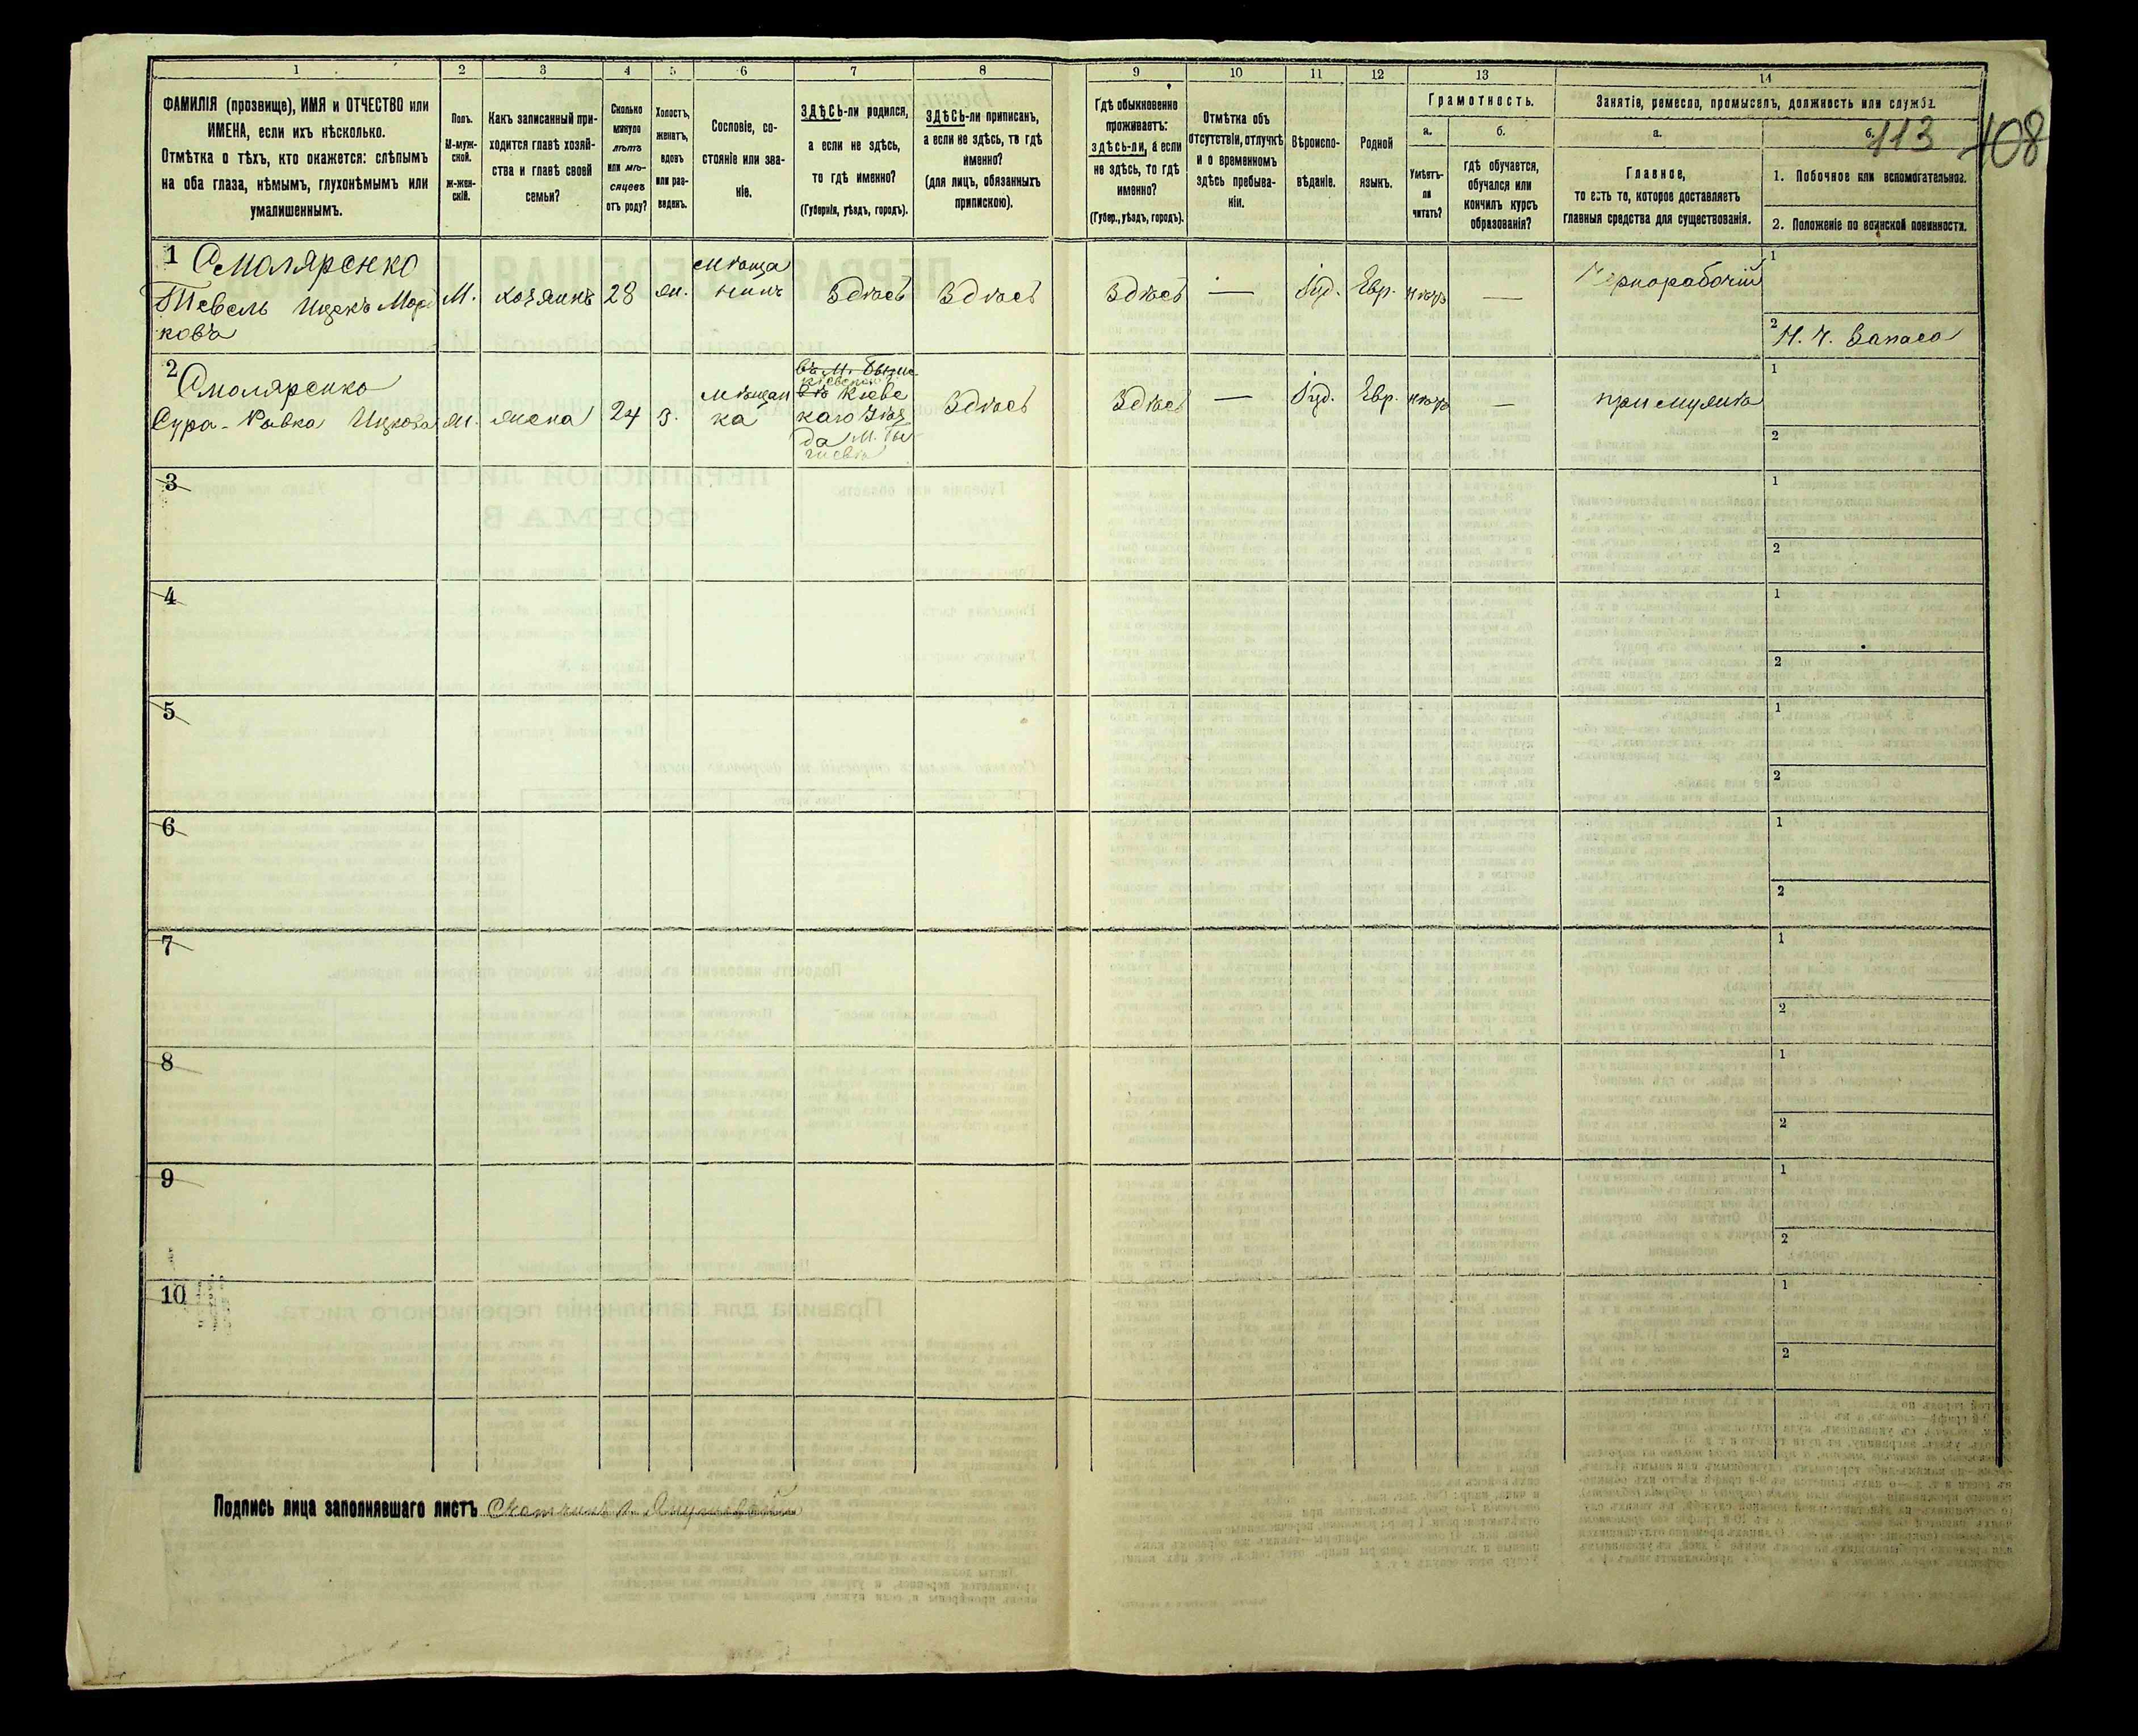 1 2 3 4 5 6 7 8 9 10 11 12 13 14
ФАМИЛІЯ (прозвище), ИМЯ и ОТЧЕСТВО или
ИМЕНА, если ихъ нѣсколько.
Отмѣтка о тѣхъ, кто окажется: слѣпымъ
на оба глаза, нѣмымъ, глухонѣмымъ или
умалишеннымъ.
Полъ.
М-муж-
ской.
ж-жен-
скій.
Какъ записанный при-
ходится главѣ хозяй-
ства и главѣ своей
семьи?
Сколько
минуло
лѣтъ
или мѣ-
сяцевъ
отъ роду?
Холостъ,
женатъ,
вдовъ
или раз-
веденъ.
Сословіе, со-
стояніе или зва-
ніе.
ЗДѢСЬ-ли родился,
а если не здѣсь,
то гдѣ именно?
(Губернія, уѣздъ, городъ).
ЗДѢСЬ-ли приписанъ,
а если не здѣсь, то гдѣ
именно?
(для лицъ, обязанныхъ
припискою).
Гдѣ обыкновенно
проживаетъ:
здѣсь-ли, а если
не здѣсь, то гдѣ
именно?
(Губер., уѣздъ, городъ).
Отмѣтка объ
отсутствіи, отлучкѣ
и о временномъ
здѣсь пребыва-
ніи.
Вѣроиспо-
вѣданіе.
Родной
языкъ.
Грамотность.
а.
Умѣетъ-
ли
читать?
б.
гдѣ обучается,
обучался или
кончилъ курсъ
образованія?
Занятіе, ремесло, промыселъ, должность или служба.
а.
Главное,
то есть то, которое доставляетъ
главныя средства для существованія.
б.
113
108
1. Побочное или вспомогательное.
2. Положеніе по воинской повинности.
1 Смоляренко
Тевель Ицекъ Мор
ковъ
М.
хозяинъ
28
ж.
мѣща
нинъ
Здѣсь
Здѣсь
Здѣсь
—
Іуд.
Евр.
нѣтъ
—
Чернорабочій
1
2 Н. Ч. Запаса
2 Смоляренко
Сура-Ривка Ицкова
ж.
жена
24
з.
мѣщан
ка
Кіеве
каго Уѣз
да М.
Здѣсь
Здѣсь
—
Іуд.
Евр.
нѣтъ
—
при мужѣ
1
2
3
1
2
4
1
2
5
1
2
6
1
2
7
1
2
8
1
2
9
1
2
10
1
2
Подпись лица заполнявшаго листъ